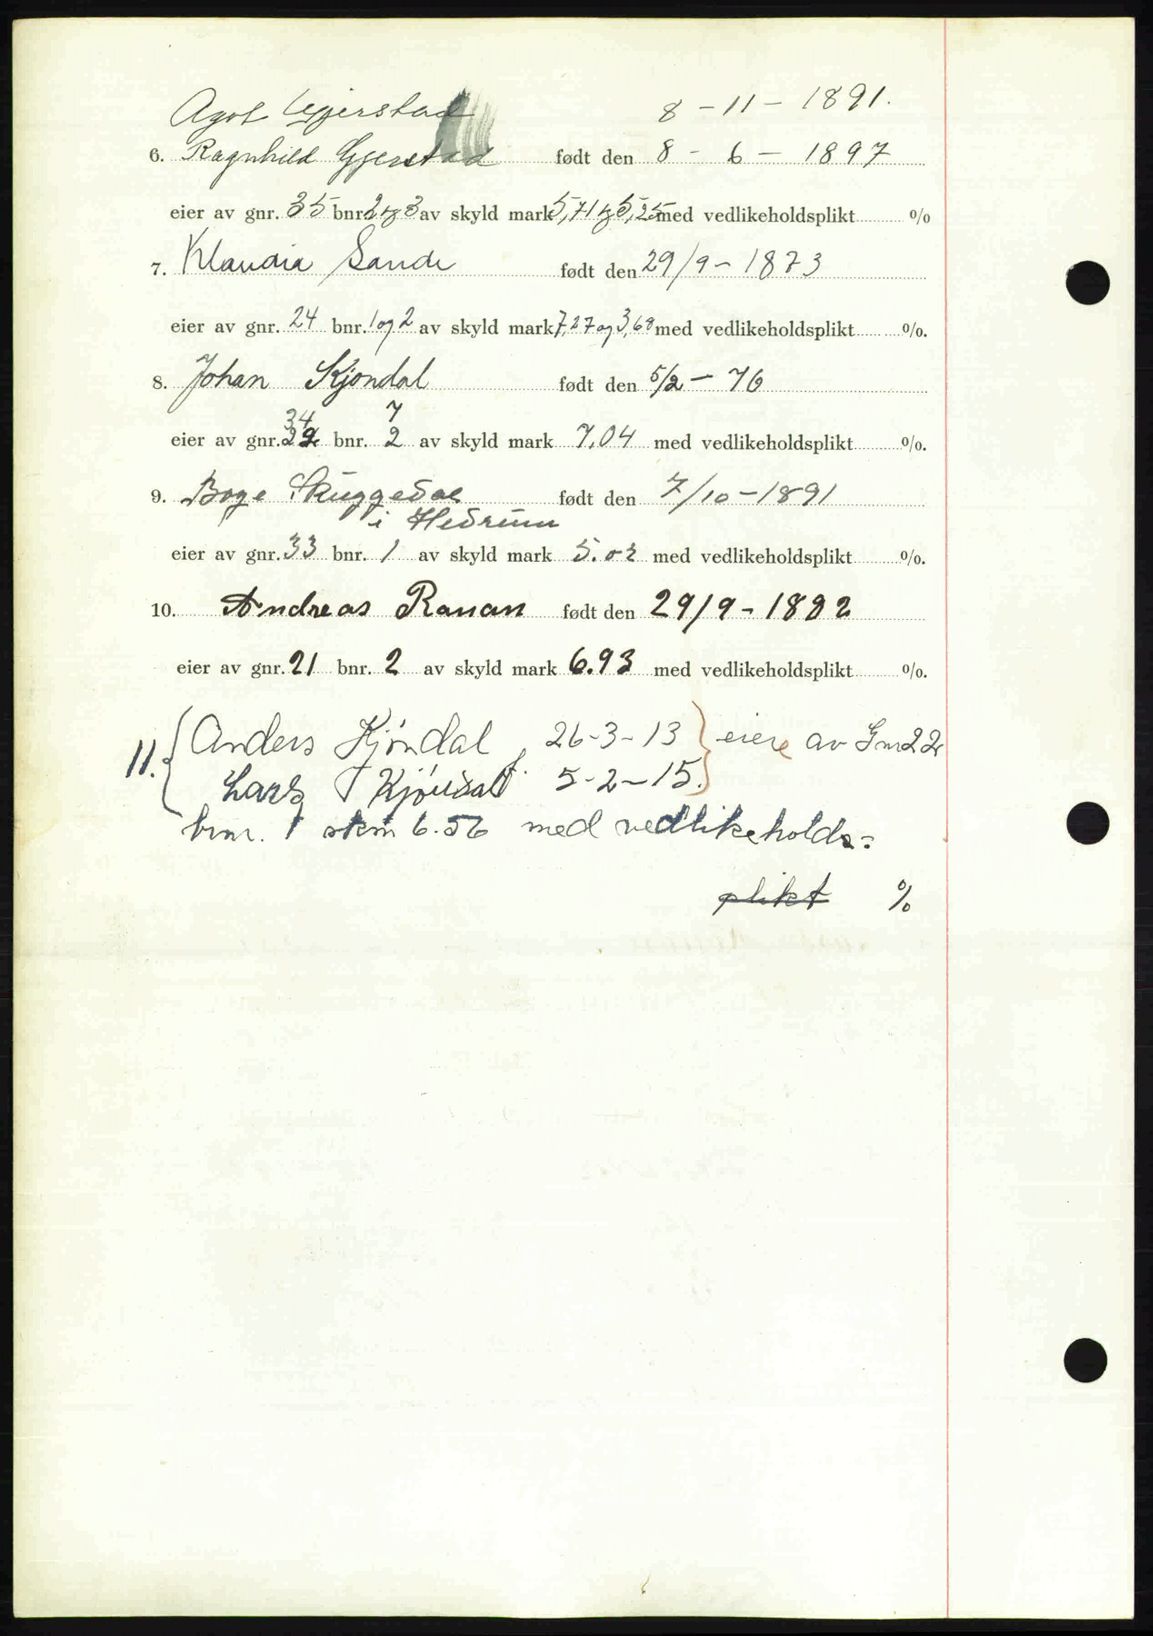 Agot Gjerstad 8 - 11 - 1891.
6. Ragnhild Gjerstad født den 8 - 6 - 1897
eier av gnr. 35 bnr. 2 og 3 av skyld mark 5,71 og 5,25 med vedlikeholdsplikt %
7. Klaudia Sande født den 29/9 - 1873
eier av gnr. 24 bnr. 1 og 2 av skyld mark 7,27 og 3,68 med vedlikeholdsplikt %.
8. Johan Kjøndal født den 5/2 - 76
34 7
eier av gnr. 22 bnr. 2 av skyld mark 7,04 med vedlikeholdsplikt %.
9. Boye Skuggedal født den 7/10 - 1891
i Hedrum
eier av gnr. 33 bnr. 1 av skyld mark 5.02 med vedlikeholdsplikt %.
10. Andreas Ranan født den 29/9 - 1882
eier av gnr. 21 bnr. 2 av skyld mark 6.93 med vedlikeholdsplikt %.
11. { Anders Kjøndal, f. 26-3-13 } eiere av Gnr 22
Lars Kjøndal 5-2-15.
bnr. 1 skm 6.56 med vedlikeholds=
plikt %